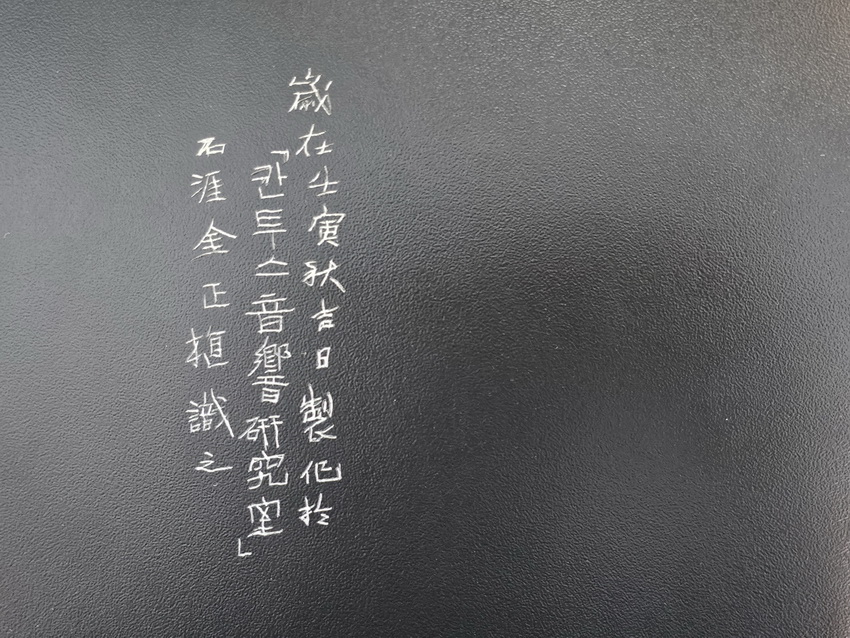 歲在壬寅秋吉日製作於
「칸투스音響硏究室」
石涯金正植識之